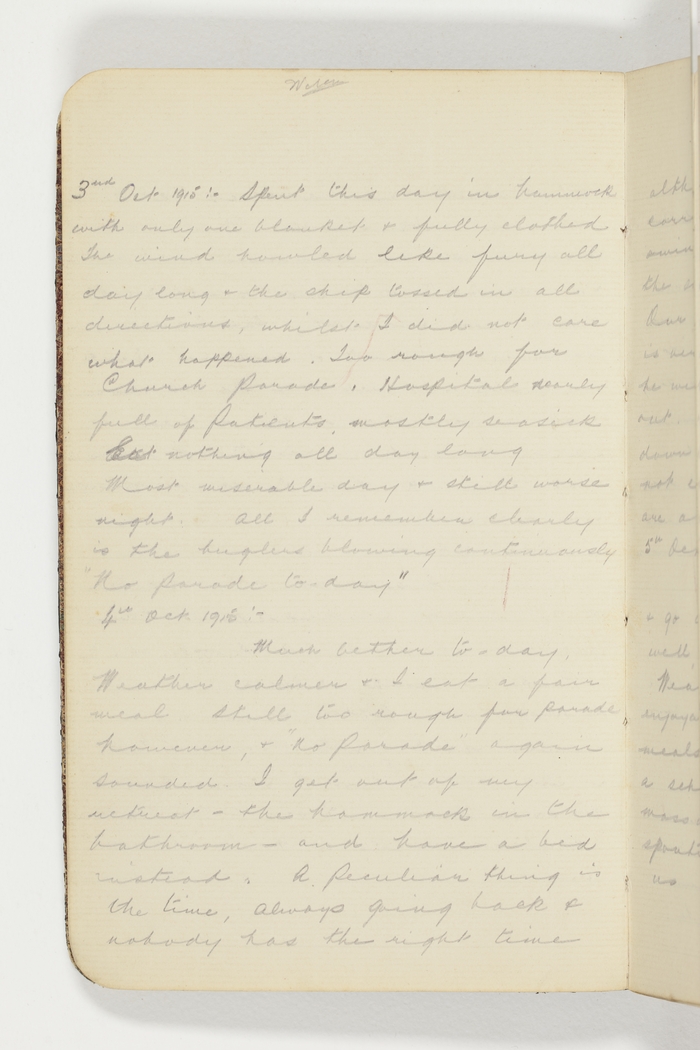 3rd Oct 1915:- Spent this day in hammock
with only one blanket & fully clothed
The wind howled like fury all
day long & the ship tossed in all
directions, whilst I did not care
what happened. Too rough for
Church Parade. Hospital nearly
full of Patients, mostly seasick
Eat nothing all day long
Most miserable day & still worse
night. All I remember clearly
is the buglers blowing continuously
"No Parade to-day"
4th Oct 1915:-
Much bether to-day.
Weather calmer & I eat a fair
meal still too rough for parade
however, & "No Parade" again
sounded. I get out of my
retreat - the hammock in the
bathroom - and have a bed
instead. A Peculiar thing is
the time, always going back &
nobody has the right time